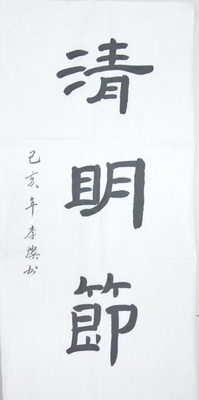 清明節
己亥年李樂书